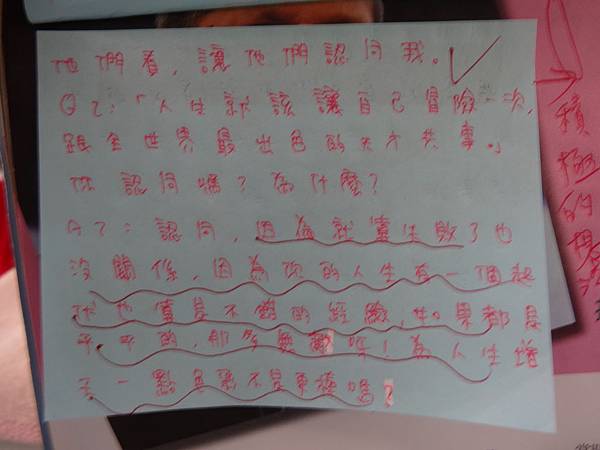 他們看，讓他們認同我。
Q2：「人生就該讓自己冒險一次，
跟全世界最出色的天才共事。」
你認同嗎？為什麼？
A2：認同，因為就算失敗了也
沒關係，因為你的人生有一個起
伏也算是不錯的經驗，如果都是
平平的，那多無聊呀！為人生增
一點
積極的想法